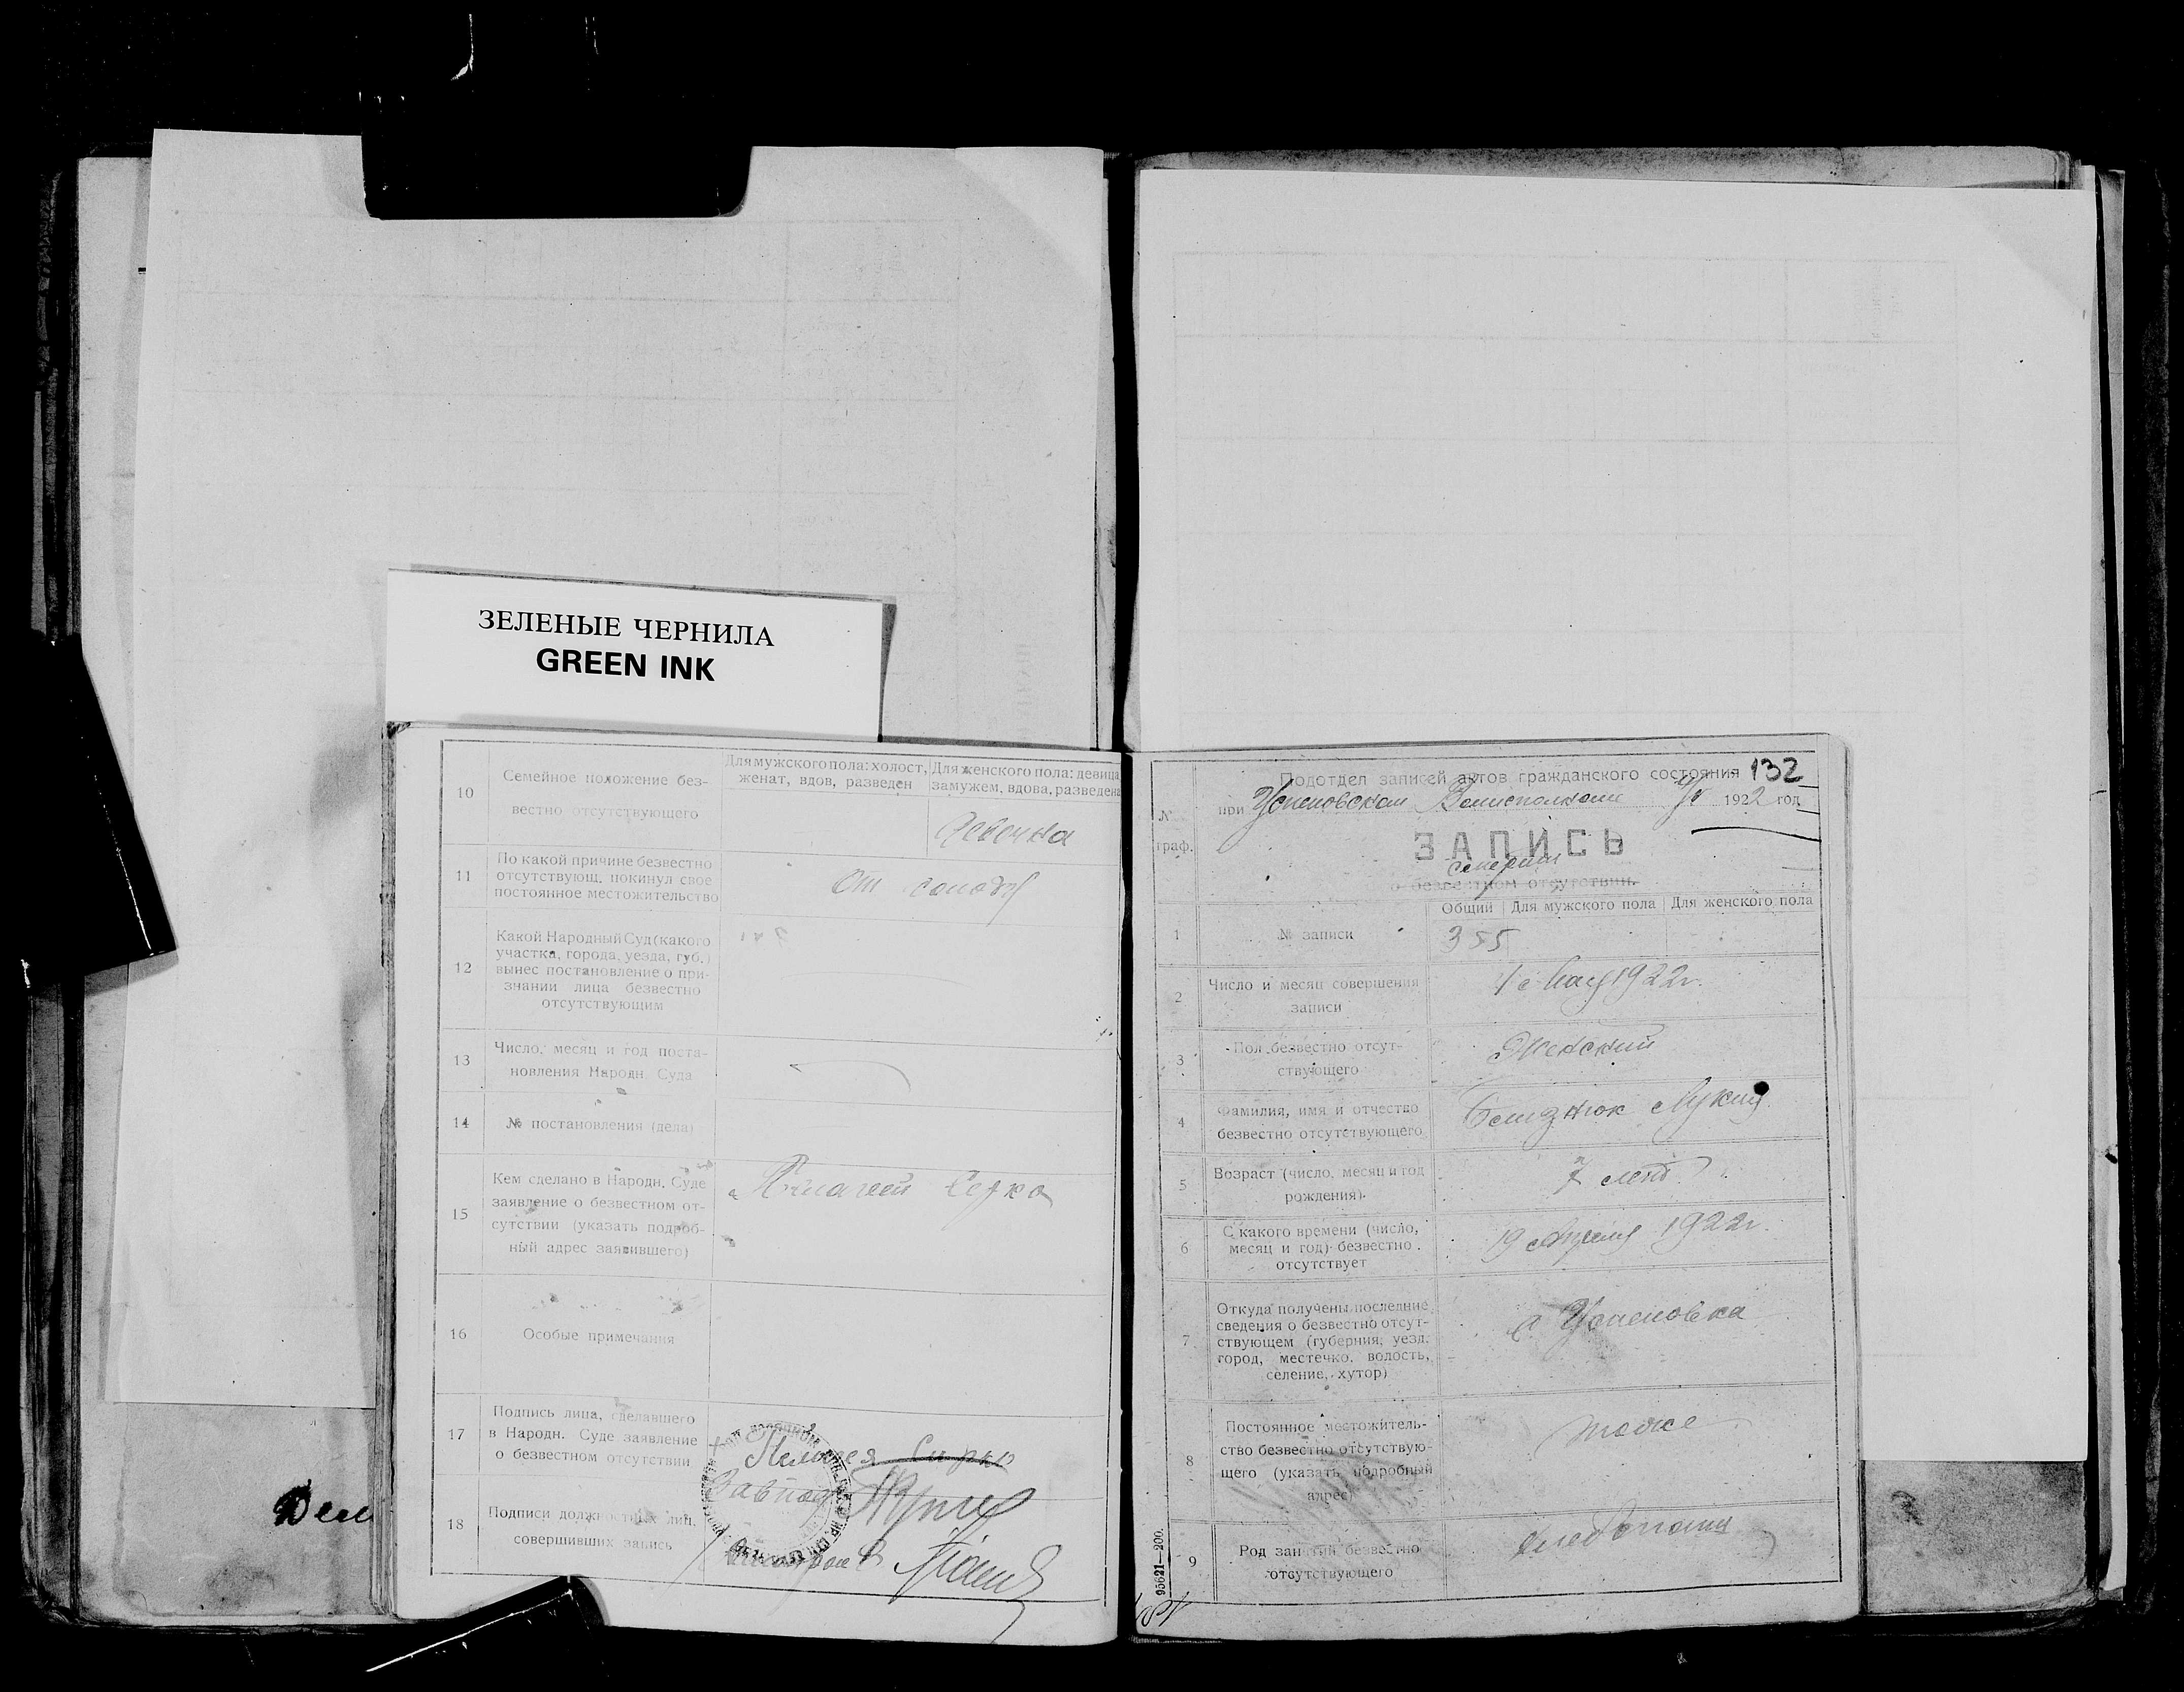 ЗЕЛЕНЫЕ ЧЕРНИЛА
GREEN INK
10
Семейное положение без-
вестно отсутствующего
Для мужского пола: холост,
женат, вдов, разведен
Для женского пола: девица,
замужем, вдова, разведена
девочка
11
По какой причине безвестно
отсутствующ. покинул свое
постоянное местожительство
От голоду
12
Какой Народный Суд (какого
участка, города, уезда, губ.)
вынес постановление о при-
знании лица безвестно
отсутствующим
13
Число, месяц и год поста-
новления Народн. Суда
14
№ постановления (дела)
15
Кем сделано в Народн. Суде
заявление о безвестном от-
сутствии (указать подроб-
ный адрес заявившего)
16
Особые примечания
17
Подпись лица, сделавшего
в Народн. Суде заявление
о безвестном отсутствии
18
Подписи должностных лиц,
совершивших запись
132
№
граф.
Подотдел записей актов гражданского состояния
при Успеновском Волисполкоме 1922 год
ЗАПИСЬ
смерти
о безвестном отсутствии.
Общий
Для мужского пола
Для женского пола
1
№ записи
355
2
Число и месяц совершения
записи
1 Мая 1922 г.
3
Пол безвестно отсут-
ствующего
Женский
4
Фамилия, имя и отчество
безвестно отсутствующего
5
Возраст (число, месяц и год
рождения).
7 лет
6
С какого времени (число,
месяц и год) безвестно
отсутствует
19 Апреля 1922 г.
7
Откуда получены последние
сведения о безвестно отсут-
ствующем (губерния, уезд,
город, местечко, волость,
селение, хутор)
с Успеновка
8
Постоянное местожитель-
ство безвестно отсутствую-
щего (указать подробный
адрес)
тоже
9
Род занятий безвестно
отсутствующего
хлебопашец
95621—200.